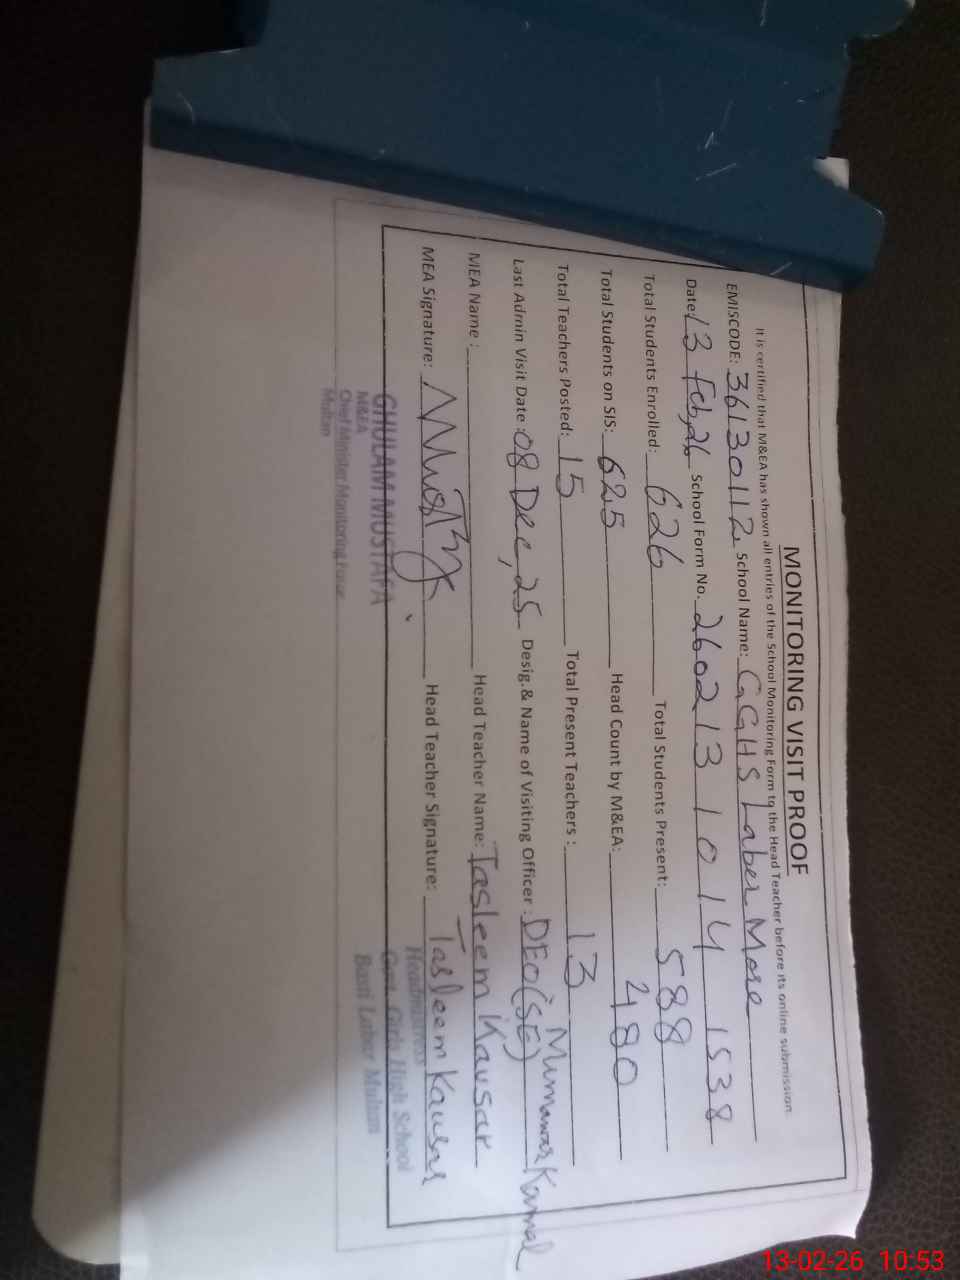 MONITORING VISIT PROOF
It is certified that M&EA has shown all entries of the School Monitoring Form to the Head Teacher before its online submission.
EMISCODE: 36130112 School Name: GGHS Laber More
Date: 13 Feb, 26 School Form No. 260213 1014 1538
Total Students Enrolled: 626 Total Students Present: 588
Total Students on SIS: 625 Head Count by M&EA: 480
Total Teachers Posted: 15 Total Present Teachers : 13
Last Admin Visit Date : 08 Dec, 25 Desig.& Name of Visiting Officer : DEO(SE) Munawar Kamal
MEA Name : Head Teacher Name: Tasleem Kausar
MEA Signature: Head Teacher Signature: Tasleem Kausar
GHULAM MUSTAFA
M&EA
Chief Minister Monitoring Force
Multan
Headmistress
Govt. Girls High School
Basti Laber Multan
13-02-26 10:53